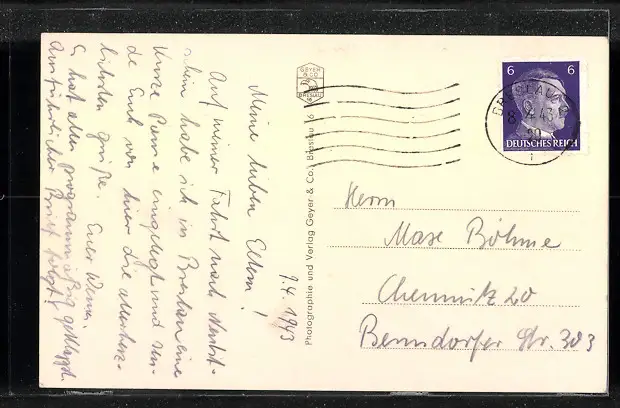 Meine lieben Eltern!
9.4.1943
Auf meiner Fahrt nach
habe ich in Breslau eine
kurze Pause eingelegt und sen-
de Euch von hier die allerherz-
lichsten Grüße. Euer Werner.
Es hat alles programmäßig geklappt.
Ausführlicher Brief folgt!
GEYER
& CO
BRESLAU
6
Photographie und Verlag Geyer & Co., Breslau 6
6 6
DEUTSCHES REICH
BRESLAU
8. 4. 43
Herrn
Max Böhme
Chemnitz 20
Bernsdorfer Str. 303